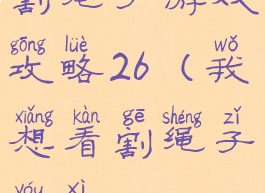 割绳子游戏
gōng lüè wǒ
攻略26（我
xiǎng kàn gē shéng zǐ
想看割绳子
yóu xì